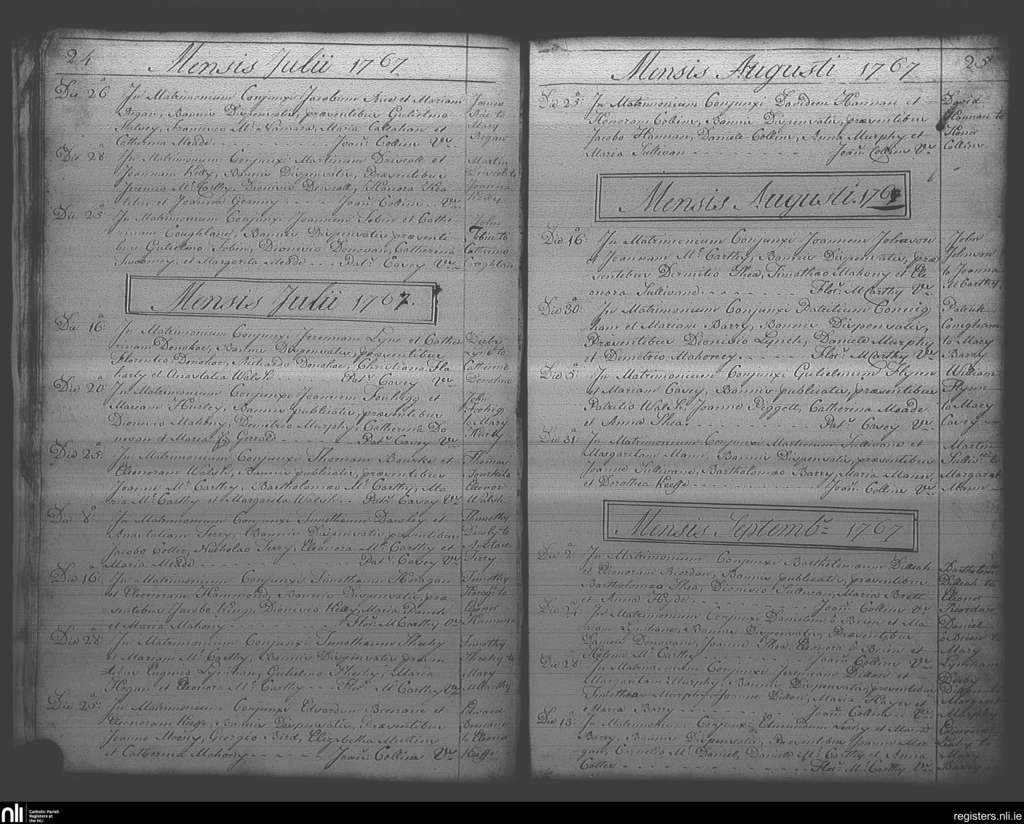 24
Mensis Julii 1767
Die 26 In Matrimonium Conjunxi Jacobum Rice et Mariam
Regan, Bannis Dispensatis, præsentibus Gulielmo
Francisco McNamara, Maria Callahan et
Catherina Meade Joan Collins Vic
James
Rice to
Mary
Regan
Die 28 In Matrimonium Conjunxi Martinum Driscoll et
Joannam Kelly, Bannis Dispensatis, Præsentibus
Jeremia McCarthy, Dionisio Driscoll, Elenora Shea
et Joanna Joan Collins Vic
Martin
Driscoll to
Joanna
Kelly
Die 25 In Matrimonium Conjunxi Joannem Tobin et Cathe
rinam Coughlan, Bannis Dispensatis præsenti
bus Gulielmo Tobin, Dionisio Donovan, Catherina
Sweeney, et Margarita Meade Pat Casey Vic
John
Tobin to
Catherine
Coughlan
Mensis Julii 1767
Die 16 In Matrimonium Conjunxi Jeremiam Lyne et Cathe
rinam Donohoe, Bannis Dispensatis, præsentibus
Florentio Donohoe, Richardo Donohoe, Christiana Fla
herty et Anastatia Walsh Pat Casey Vic
Darby
Lyne to
Catherine
Donohoe
Die 20 In Matrimonium Conjunxi Joannem et
Mariam Hurley, Bannis publicatis, præsentibus
Dionisio Mahony, Demetrio Murphy, Catherina Do
novan et Maria Pat Casey Vic
John
to Mary
Die 25 In Matrimonium Conjunxi Thomam Bourke et
Elenoram Walsh, Bannis publicatis, præsentibus
Joanne McCarthy, Bartholomeo McCarthy, Ma
ria McCarthy et Margarita Walsh Pat Casey Vic
Thomas
to
Elenor
Walsh
Die 8 In Matrimonium Conjunxi Timotheum Dawley et
Anastatiam Terry, Bannis Dispensatis præsentibus
Jacobo Cotter, Nicholao Terry, Elenora McCarthy et
Maria Meade Pat Casey Vic
Timothy
Dawly to
Terry
Die 16 In Matrimonium Conjunxi Timotheum
et Elenoram Hammond, Bannis Dispensatis, præ
sentibus Jacobo Keegh, Dionisio Kelly, Maria Daniel
et Maria Mahony Flor McCarthy Vic
Timothy
to
Elenor
Die 28 In Matrimonium Conjunxi Timotheum Sheehy
et Mariam McCarthy, Bannis Dispensatis præsen
tibus Eugenio Lyneham, Gulielmo Sheehy, Maria
Hogan et Elenora McCarthy Flor McCarthy Vic
Timothy
Sheehy to
Mary
McCarthy
Die 25 In Matrimonium Conjunxi Edvardum et
Elenoram Keeffe, Bannis Dispensatis, præsentibus
Joanne Georgio Bird, Elizabetha
et Catherina Mahony Joan Collins Vic
Edward
to Elenor
Keeffe
25
Mensis Augusti 1767
Die 25 In Matrimonium Conjunxi Davidem Hannan et
Honoram Collins, Bannis Dispensatis, præsentibus
Jacobo Hannan, Daniele Collins, Anna Murphy et
Maria Sullivan Joan Collins Vic
David
Hannan to
Honor
Collins
Mensis Augusti 1767
Die 16 In Matrimonium Conjunxi Joannem Johnson
et Joannam McCarthy, Bannis Dispensatis, præ
sentibus Dionisio Shea, Timotheo Mahony et Ele
onora Sullivane Flor McCarthy Vic
John
Johnson
to Joanna
McCarthy
Die 30 In Matrimonium Conjunxi Patritium Cornig
ham et Mariam Barry, Bannis Dispensatis,
Præsentibus Dionisio Lynch, Daniele Murphy
et Demetrio Mahoney Flor McCarthy Vic
Patrick
Cornigham
to Mary
Barry
Die 5 In Matrimonium Conjunxi Gulielmum Flynn
et Mariam Casey, Bannis publicatis, præsentibus
Patritio Walsh, Joanne Piggott, Catherina Meade
et Anna Shea Pat Casey Vic
William
Flynn
to Mary
Casey
Die 31 In Matrimonium Conjunxi Martinum Sullivane et
Margaritam Mann, Bannis Dispensatis, præsentibus
Joanne Sullivane, Bartholomeo Barry, Maria
et Dorothea Keeffe Joan Collins Vic
Martin
to
Margaret
Mann
Mensis Septembr 1767
Die 2 In Matrimonium Conjunxi Bartholomeum
et Elenoram Riordan, Bannis publicatis, præsentibus
Bartholomeo Shea, Dionisio Sullivan, Maria Brett
et Anna Hyde Joan Collins Vic
to
Elenor
Riordan
Die 21 In Matrimonium Conjunxi Danielem ô Brien et Ma
riam Bannis Dispensatis, Præsentibus
Joanne Shea, Elenora ô Brien et
Helena McCarthy Joan Collins Vic
Daniel
ô Brien to
Mary
Die 28 In Matrimonium Conjunxi Jeremiam et
Margaritam Murphy, Bannis Dispensatis, præsentibus
Timotheo Murphy, Joanne Maria Hayes et
Maria Barry Joan Collins Vic
Darby
to
Margaret
Murphy
Die 13 In Matrimonium Conjunxi Edmundum et Mariam
Barry, Bannis Dispensatis, Præsentibus Joanne Mor
gan, Cornelio McDaniel, Daniele McCarthy et Anna
Cotter Flor McCarthy Vic
Edmund
to
Mary
Barry
nli
Catholic Parish
Registers at
the NLI
registers.nli.ie